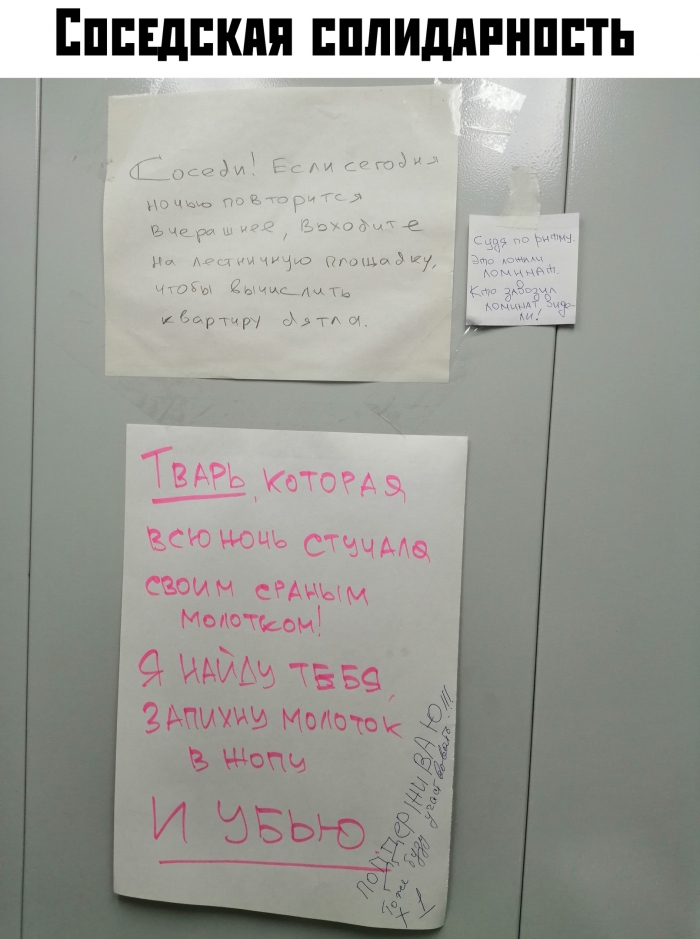 Соседская солидарность
Соседи! Если сегодня
ночью повторится
вчерашнее, выходите
на лестничную площадку,
чтобы вычислить
квартиру дятла.
Судя по ритму.
Это ложили
ломинат.
Кто завозил
ломинат видо-
ли!
Тварь, которая
всю ночь стучала
своим сраным
молотком!
Я найду тебя,
запихну молоток
в жопу
и убью
ПОДДЕРЖИВАЮ
Тоже буду участвовать!!!